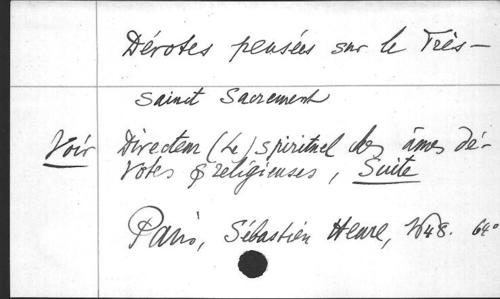 Dévotes pensées sur le Très-
saint Sacrement
Voir Directeur (Le) spirituel des âmes dé-
votes & religieuses, Suite
Paris, Sébastien Heure, 1648.